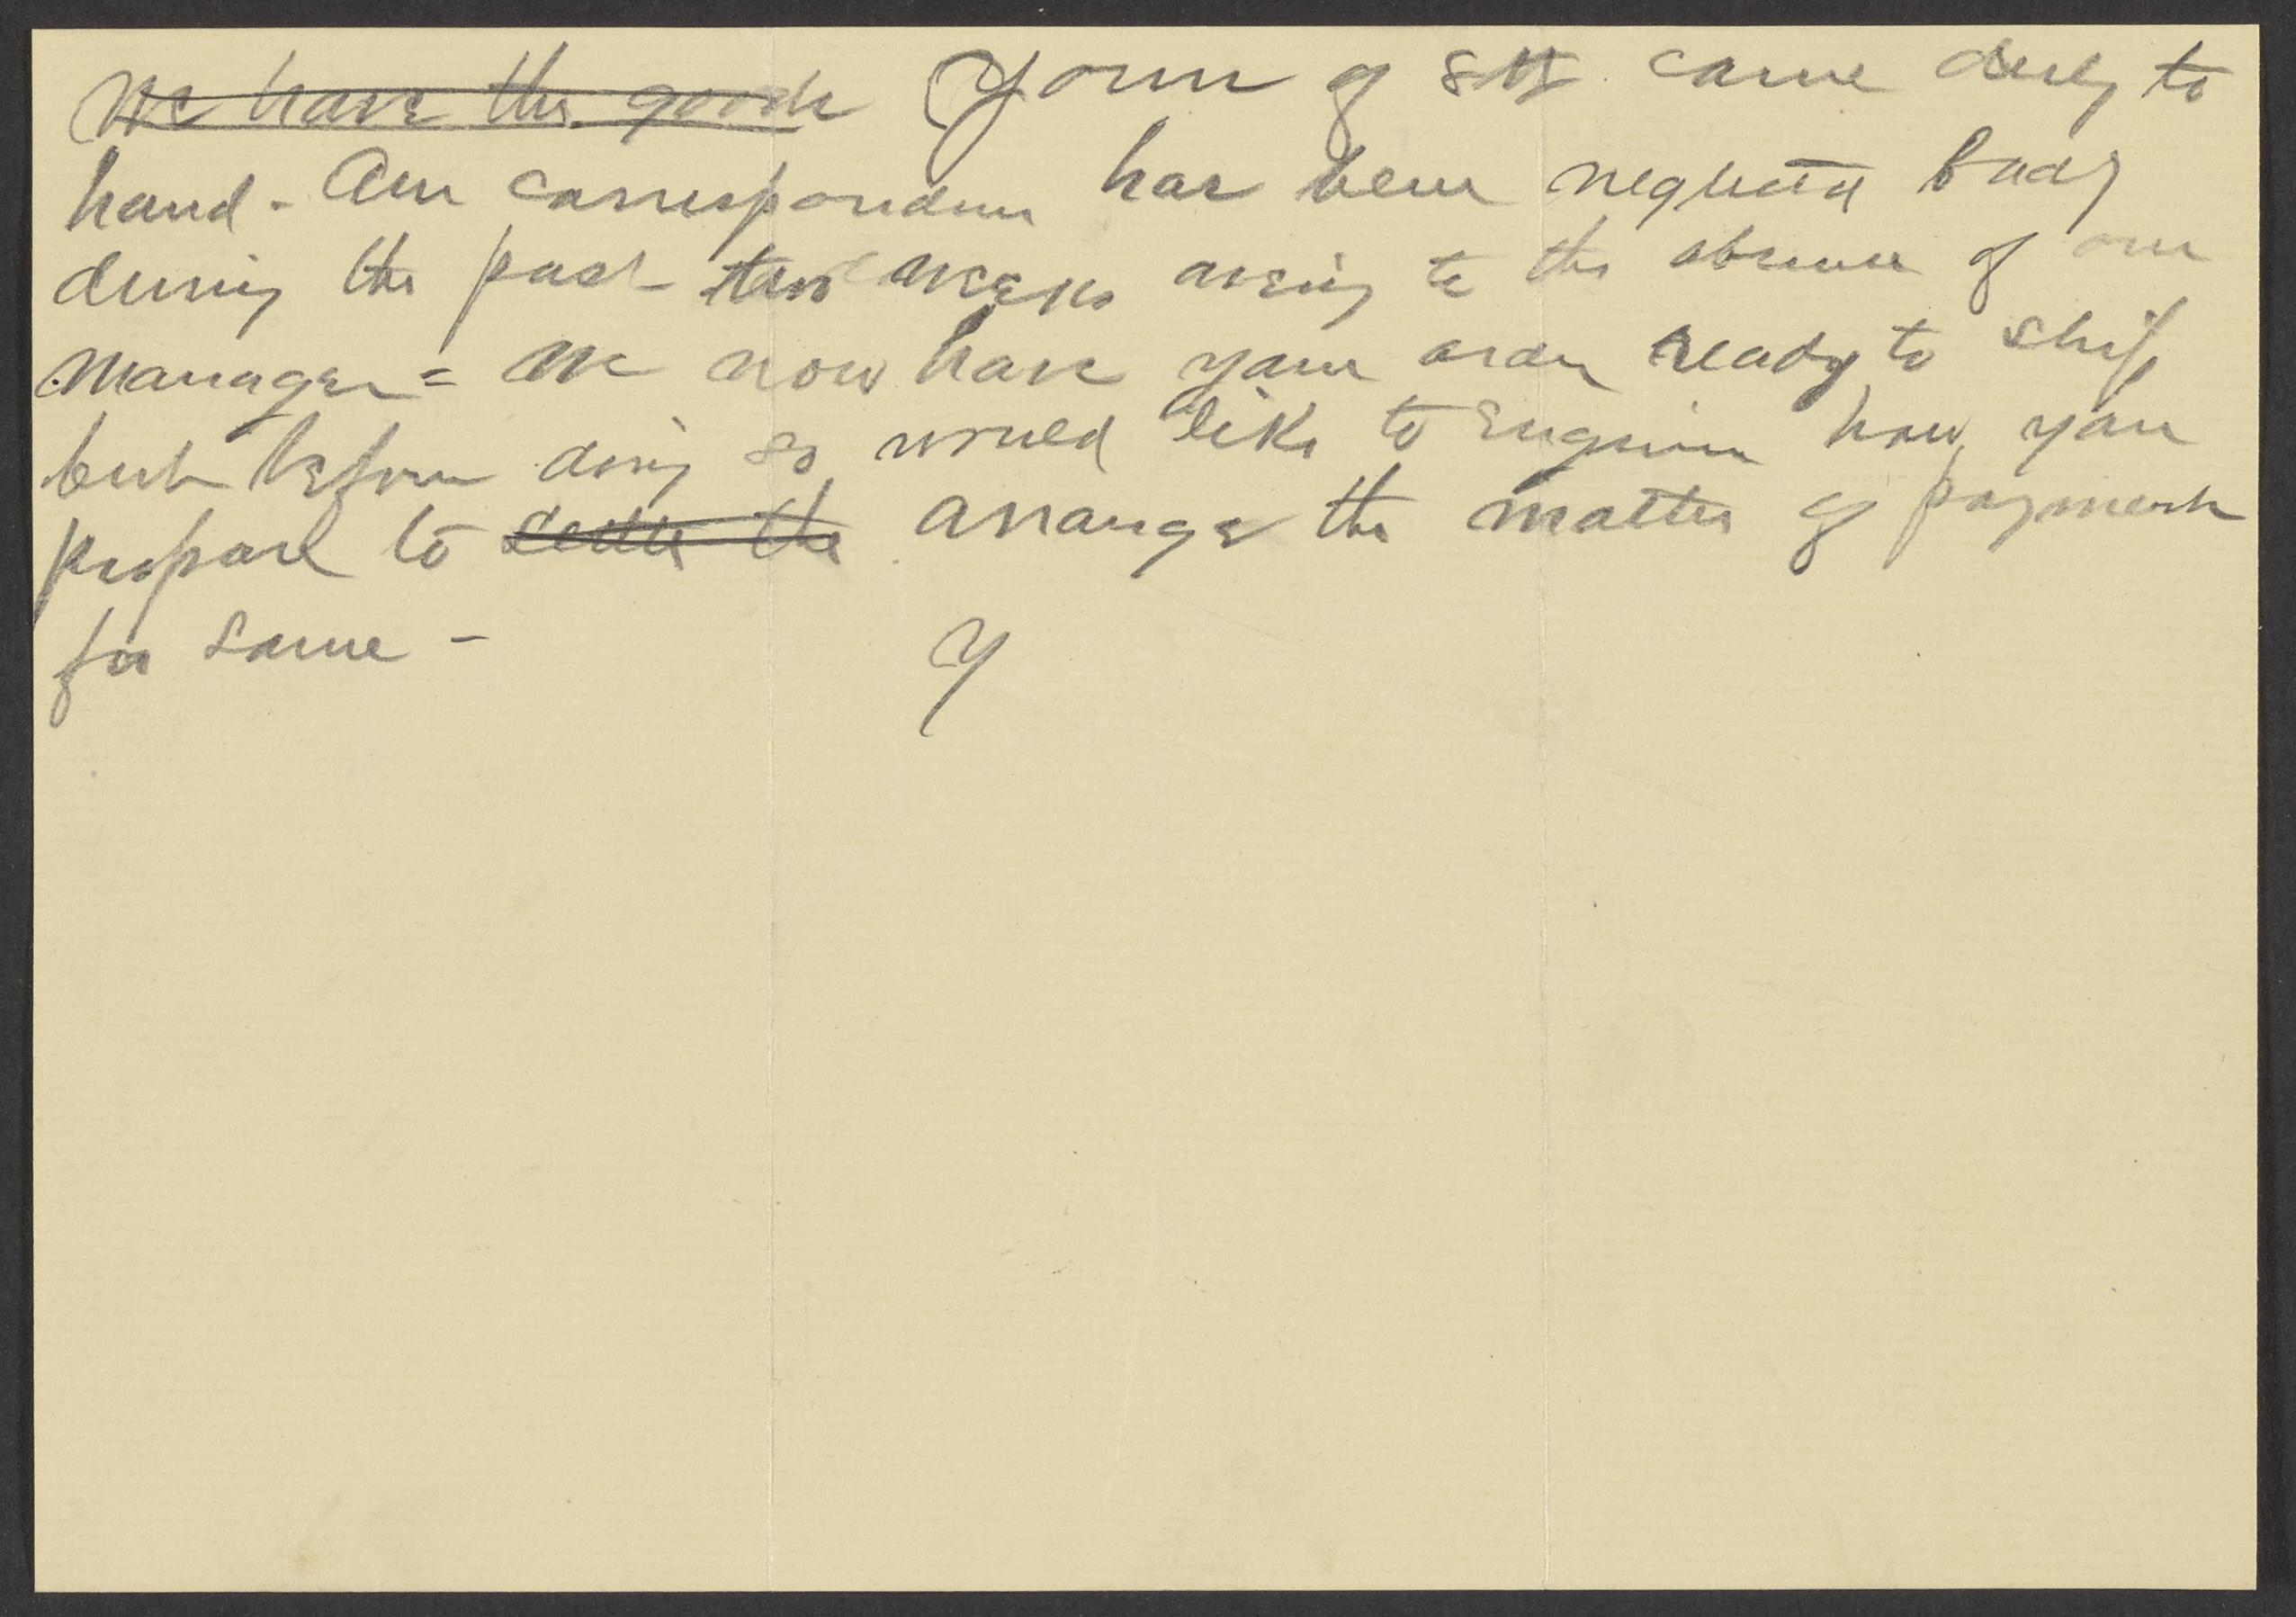 We have the goods Yours of 8th came duly to
hand - Our correspondence has been neglected badly
during the past two weeks owing to the absence of our
manager = We now have your order ready to ship
but before doing so would like to enquire how you
propose to settle the arrange the matter of payment
for same - Y